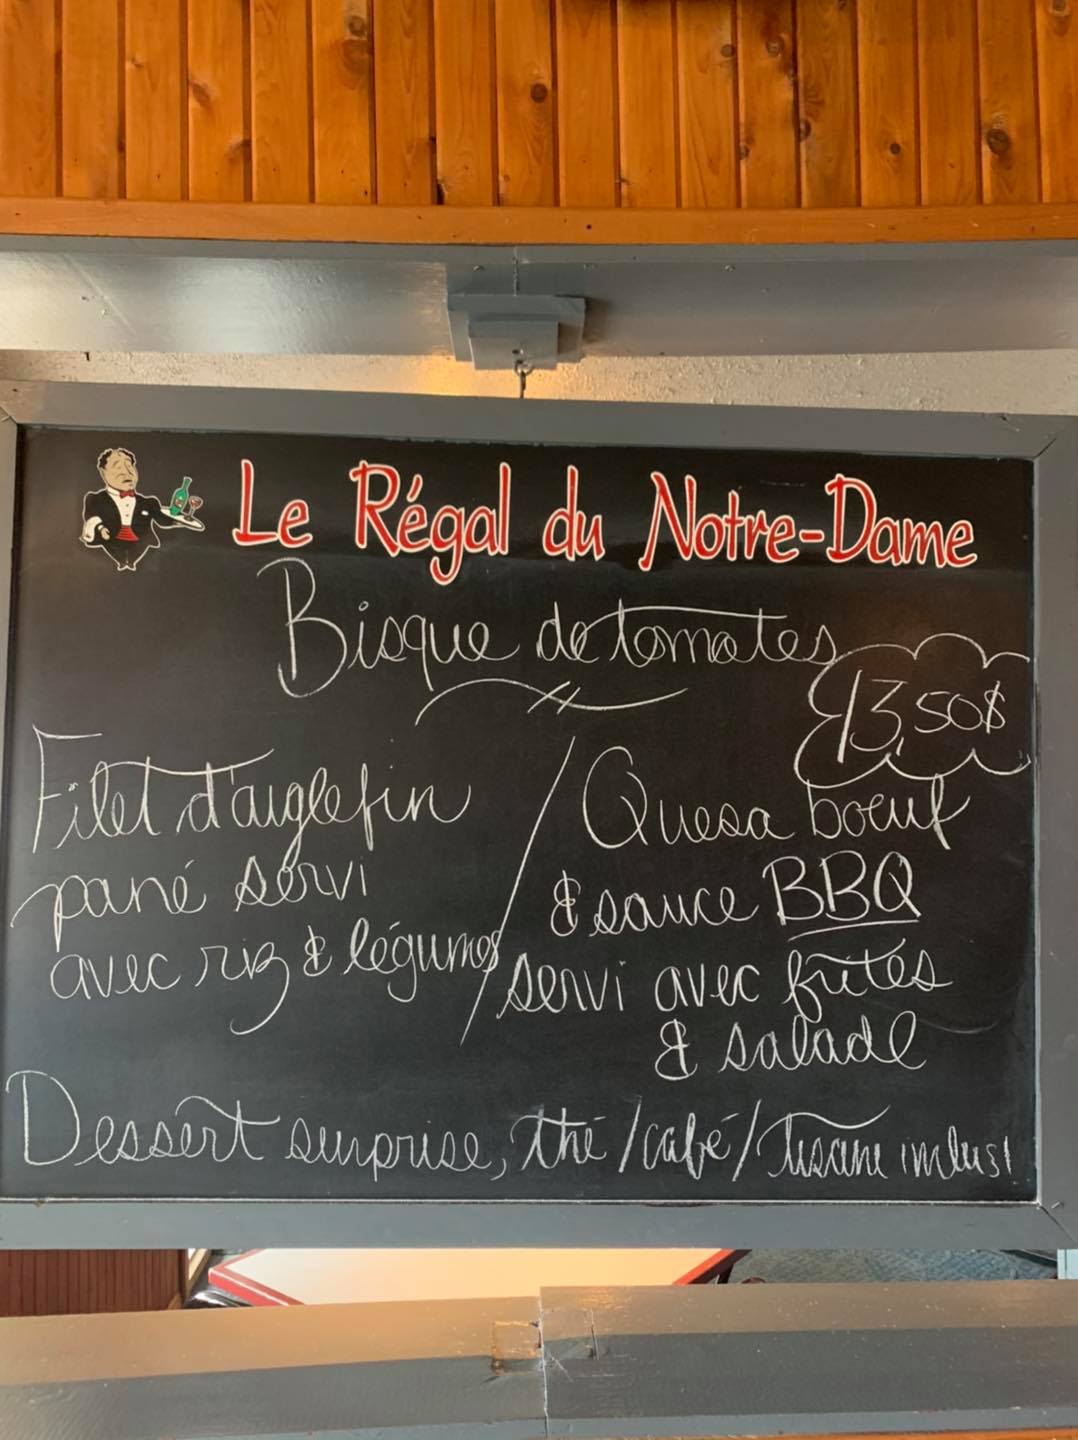 Le Régal du Notre-Dame
Bisque de tomates
13,50$
Filet d'aiglefin
pané servi
avec riz & légumes
/
Quesa boeuf
& sauce BBQ
servi avec frites
& salade
Dessert surprise, thé / café / tisane inclus!